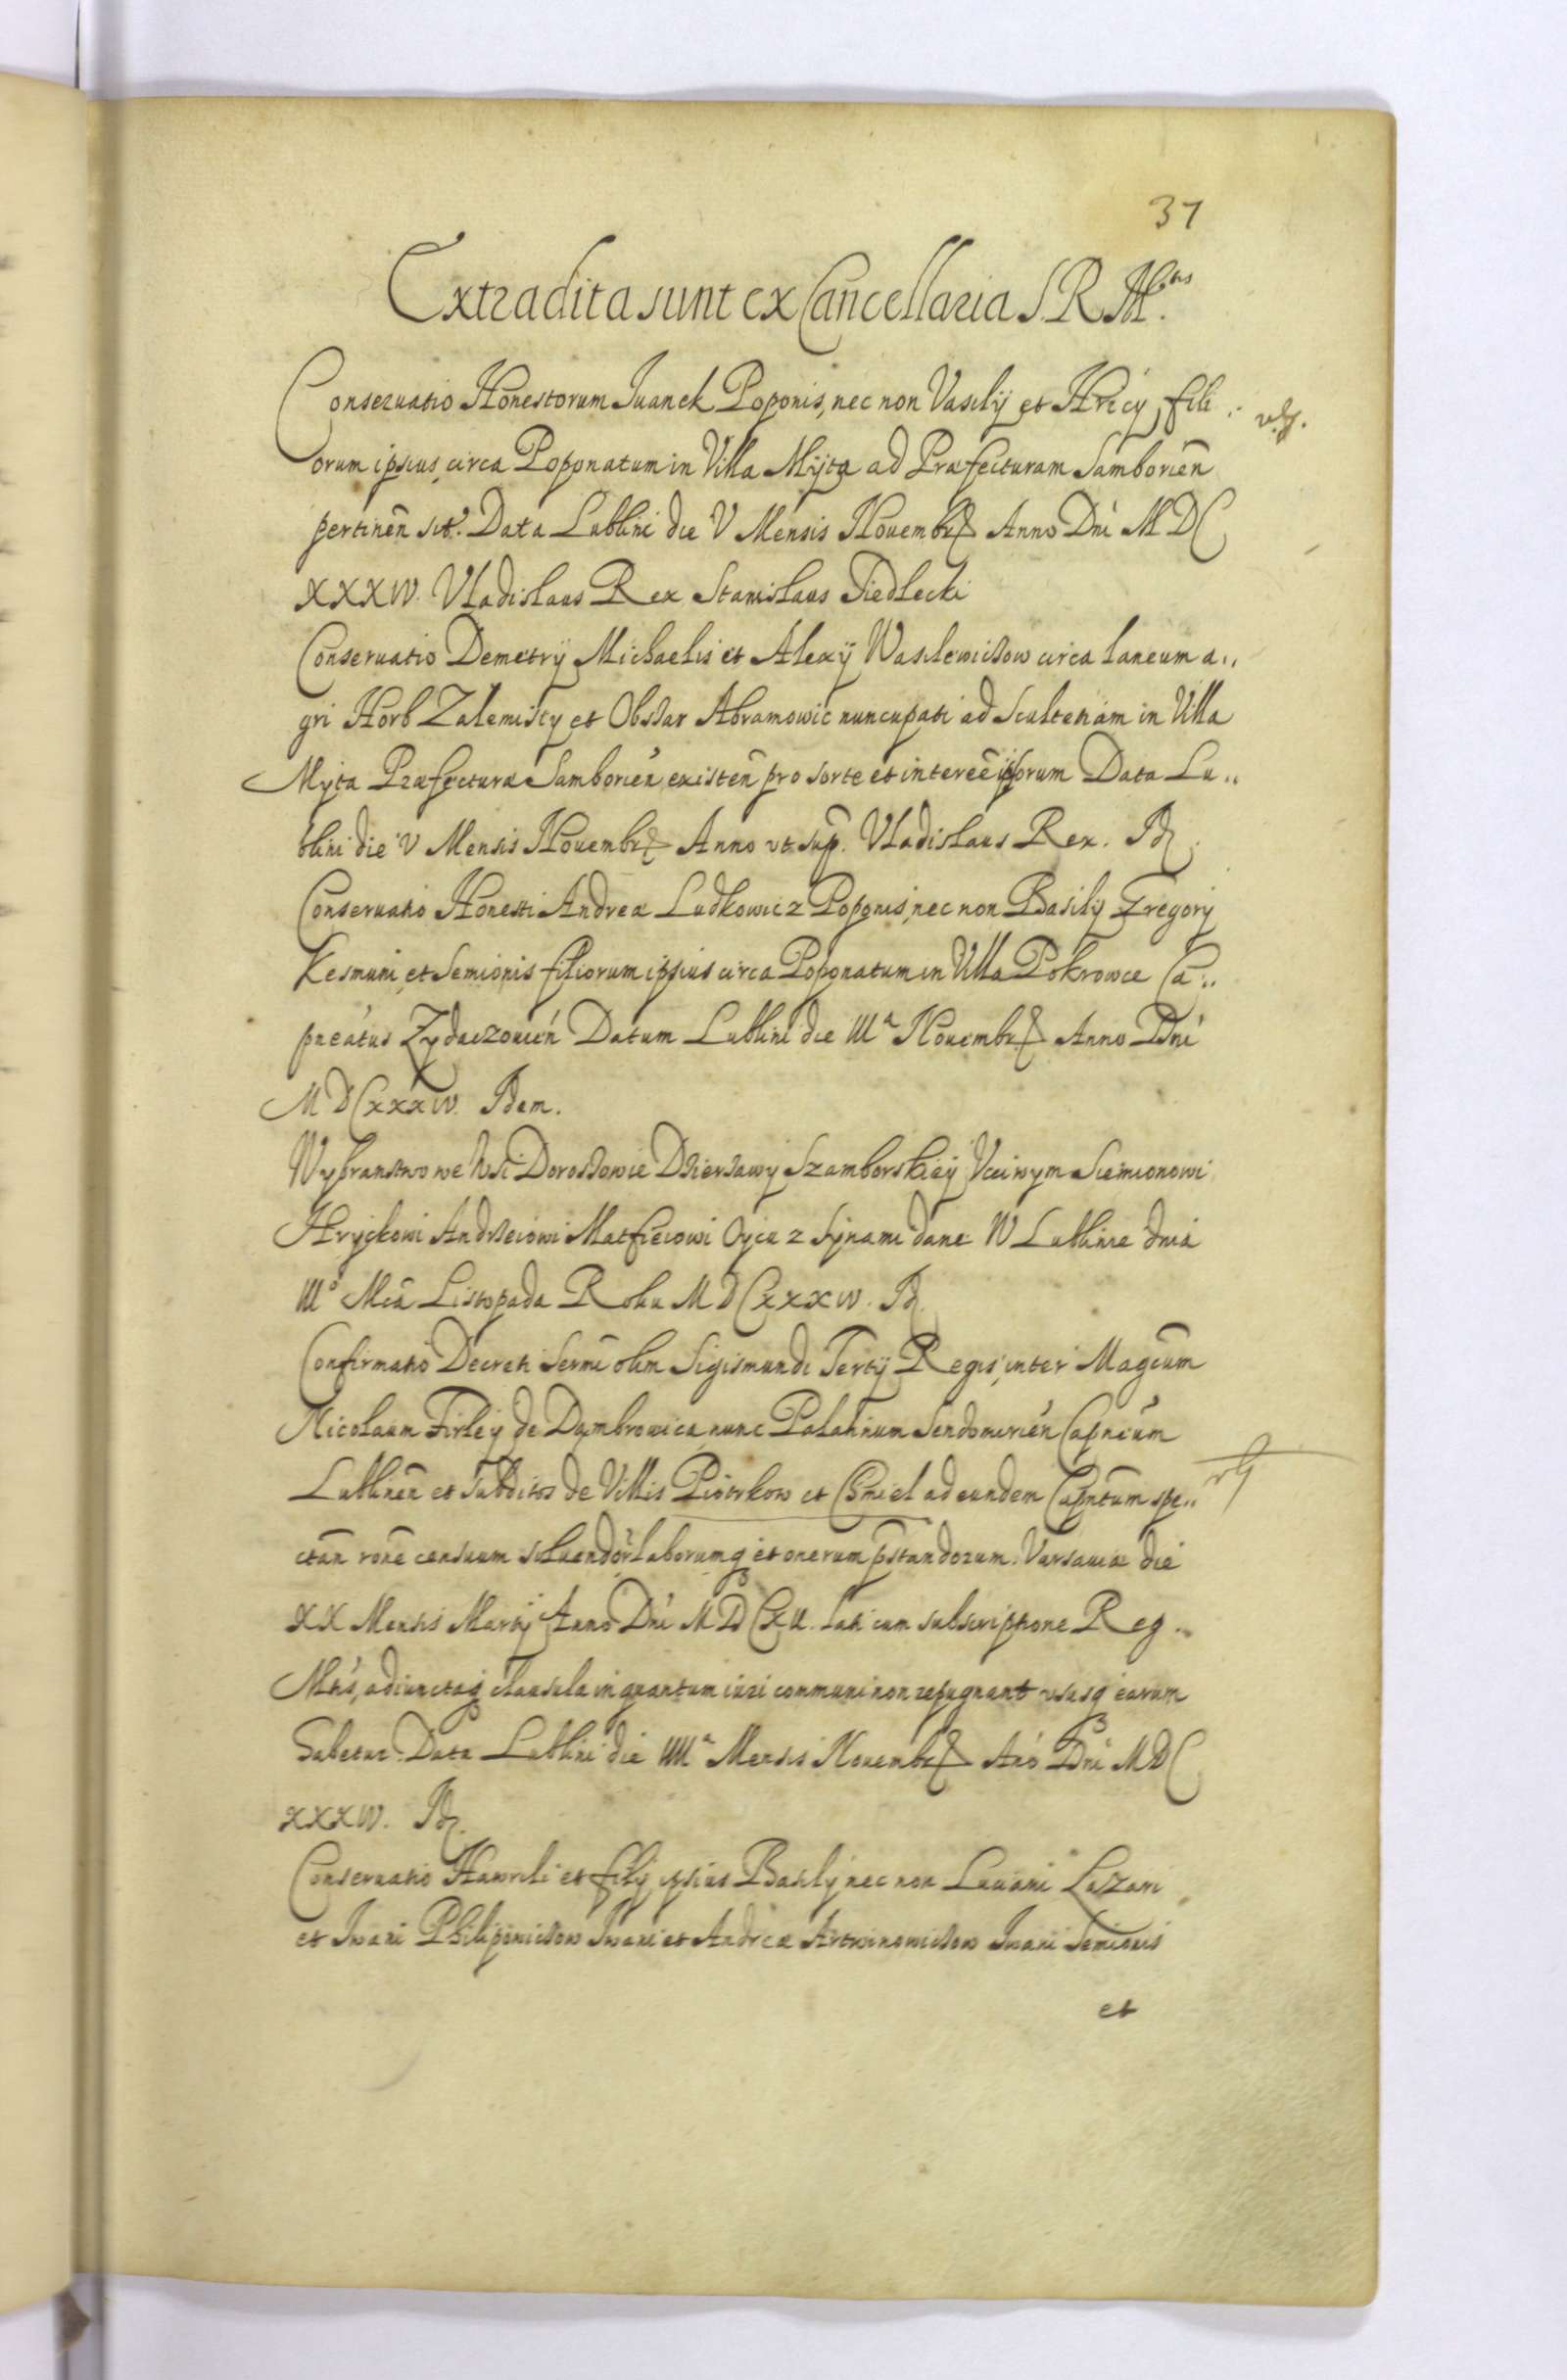 37
Extradita sunt ex Cancellaria S. R. M.tis
Conservatio Honestorum Iuanek Poponis, nec non Vasilÿ et Hricÿ fili
orum ipsius, circa Poponatum in Villa Mÿta ad Præfecturam Samborien̄
pertinen̄ sit. Data Lublini die V Mensis Nouembr̃ Anno Dni MDC
XXXIV. Vladislaus Rex Stanislaus Siedlecki
Conseruatio Demetrÿ Michaelis et Alexÿ Wasilewiczow circa laneum a„
gri Horb Zalemisty et Obszar Abramowic nuncupati ad Scultetiam in Villa
Myta Præfecturæ Samborien̄ existen̄ pro sorte et intereē ipsorum Data Lu„
blini die V Mensis Nouembr̃ Anno ut sup. Vladislaus Rex. Id.
Conseruatio Honesti Andreæ Ludkowicz Poponis, nec non Basilÿ Gregorÿ
Kesmuni, et Semionis filiorum ipsius circa Poponatum in Villa Pokrowce Ca„
pneatus Zydaczouien̄ Datum Lublini die IIIa Nouembr̃ Anno Dni
MDCXXXIV. Idem.
Wybranstwo we Wsi Doroszowie Dzierzawy Szamborskieÿ Vcciwym Siemionowi
Hryckowi Andrzeiowi Matfieiowi Oÿcu z Synami dane W Lublinie dnia
IIIo Mcā Listopada Roku MDCXXXIV. Id.
Confirmatio Decreti Sermi olim Sigismundi Tertÿ Regis, inter Magcum
Nicolaum Firleÿ de Dąmbrowica, nunc Palatinum Sendomirien̄ Capneum
Lublinen̄ et Subditos de Villis Piotrkow et Chmiel ad eundem Capntum spe„
ctan̄ rone censuum soluendor̃ laborumq et onerum pstandorum. Varsauiæ die
XX Mensis Martÿ Anno Dni MDCXII. lati cum subscriptione Reg„
Mtis, adiunctaq clausula in quantum iuri communi non repugnant ususq earum
habetur. Data Lublini die IIIIa Mensis Nouembr̃ Ano Dni MDC
XXXIV. Id.
Conseruatio Hawrili et filÿ ipsius Basilÿ nec non Lazari
et Iwani Philipowiczow Iwani et Andreæ Iwani Semionis
et